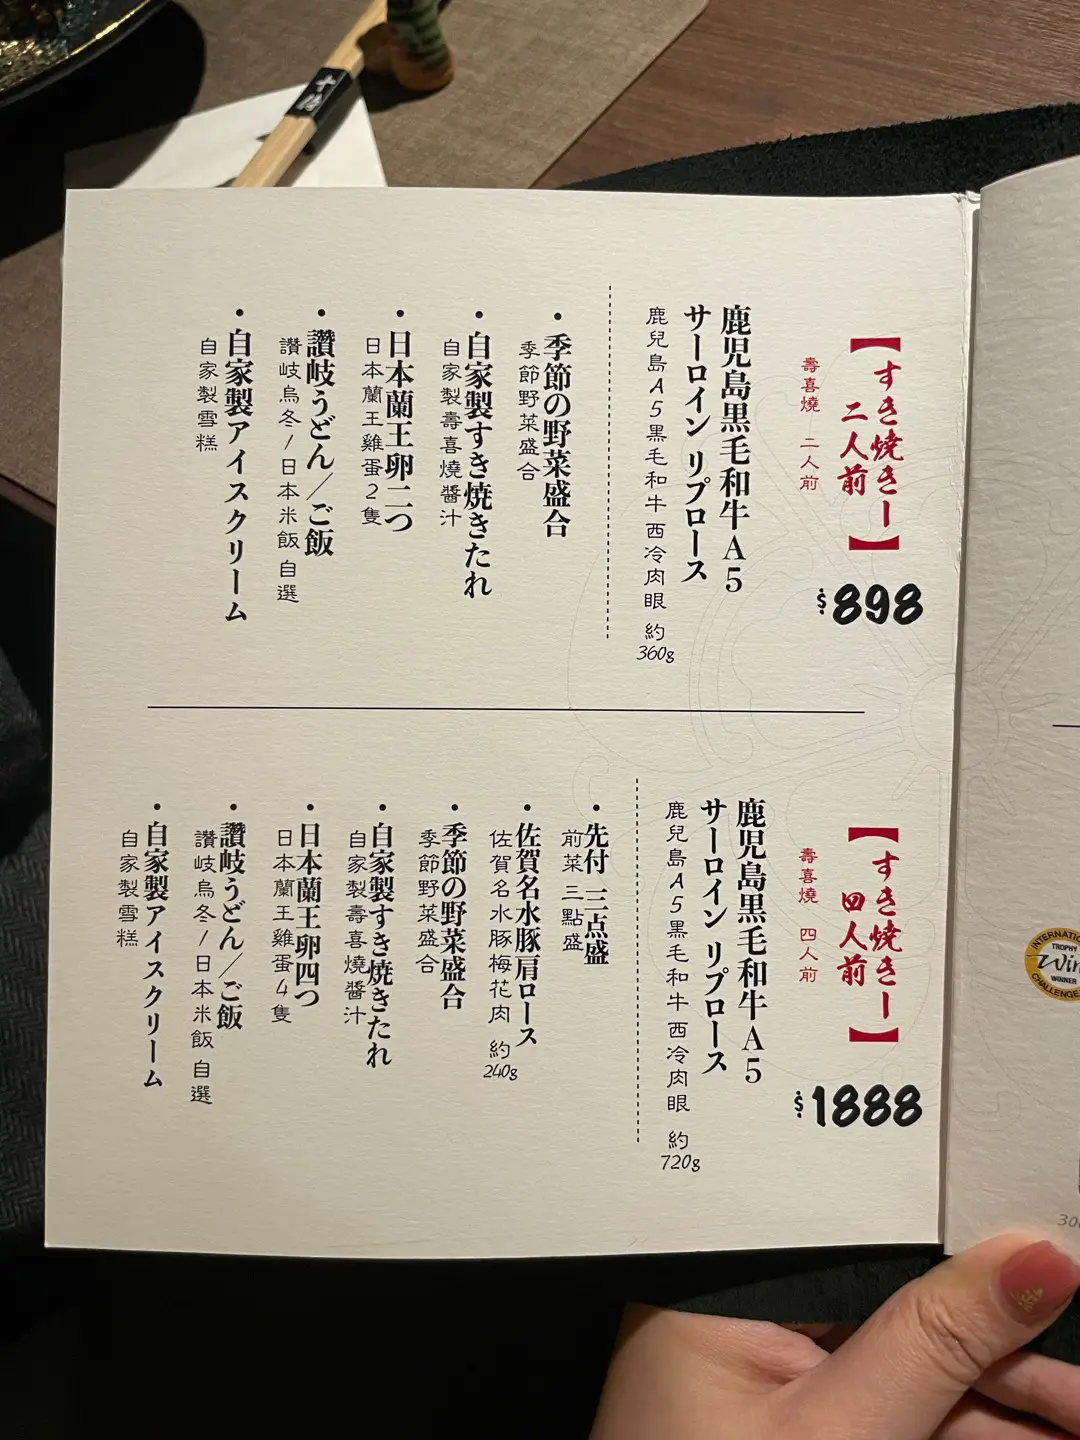 【すき焼きー】
二人前
壽喜燒 二人前
$898
鹿児島黒毛和牛A5
サーロイン リブロース
鹿兒島A5黒毛和牛 西冷肉眼 約360g
・季節の野菜盛合
季節野菜盛合
・自家製すき焼きたれ
自家製壽喜燒醬汁
・日本蘭王卵二つ
日本蘭王雞蛋2隻
・讚岐うどん／ご飯
讚岐烏冬/日本米飯 自選
・自家製アイスクリーム
自家製雪糕
【すき焼きー】
四人前
壽喜燒 四人前
$1888
鹿児島黒毛和牛A5
サーロイン リプロース
鹿兒島A5黒毛和牛 西冷肉眼 約720g
・先付 三点盛
前菜三點盛
・佐賀名水豚肩ロース
佐賀名水豚梅花肉 約240g
・季節の野菜盛合
季節野菜盛合
・自家製すき焼きたれ
自家製壽喜燒醬汁
・日本蘭王卵四つ
日本蘭王雞蛋4隻
・讚岐うどん／ご飯
讚岐烏冬/日本米飯 自選
・自家製アイスクリーム
自家製雪糕
TROPHY
WINNER